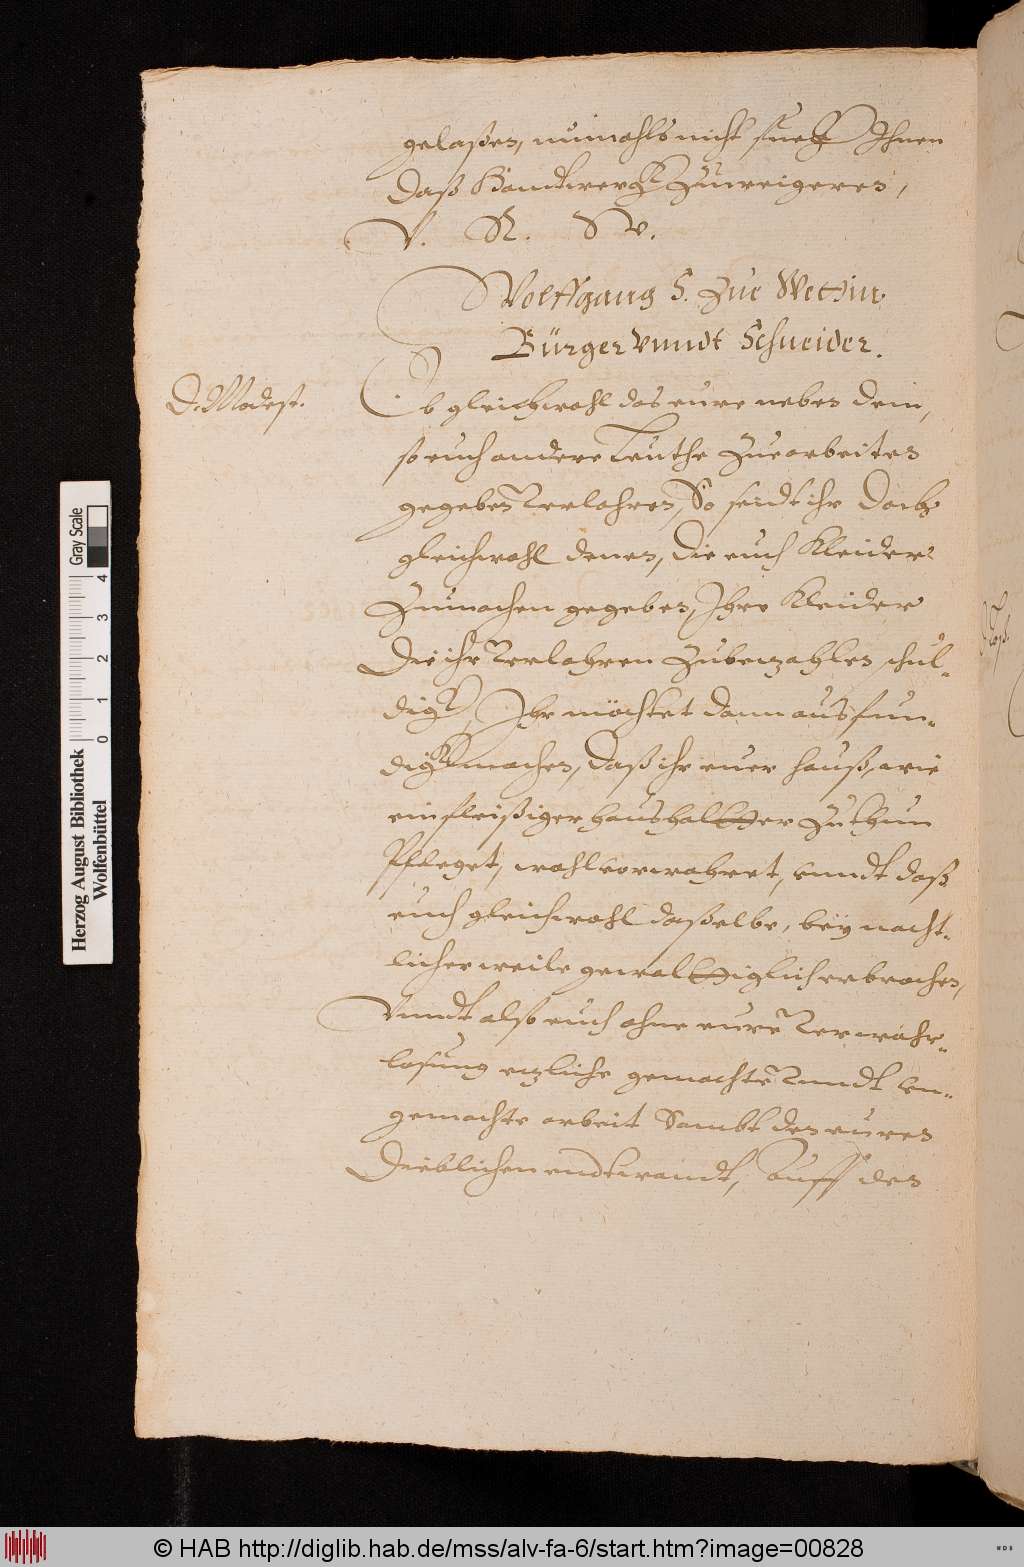 gelaßen, numahls nicht fueg Ihnen
Daß Handtwergk Zuuereigeren,
V. R. W.
Wolffgang S. zue Wettin
Bürger vnndt Schneider.
D. Modest.
Ob gleichwohl das eure neben dem,
so euch andere Leuthe Zuearbeiten
gegeben verlohren, So seidt ihr doch
gleichwohl denen, die euch Kleider
Zumachen gegeben, Ihre Kleider
Die ihr verlohren Zubenzahlen schul-
digk, Ihr möchtet dann ausfun-
digk machen, Daß ihr euer hauß, wie
ein fleißiger haushaltter zuthun
Pfleget, wohl vorwahret, vnndt daß
euch gleichwohl daßelbe, bey nacht-
licher weile gewaltiglich erbrochen,
Vnndt also euch ohne eure verwahr-
losung etzliche gemachte vnndt vn-
gemachte arbeit Sambt den euren
Dieblichen endtwandt, Auff den
Herzog August Bibliothek
Wolfenbüttel
Gray Scale
0 1 2 3 4
© HAB http://diglib.hab.de/mss/alv-fa-6/start.htm?image=00828